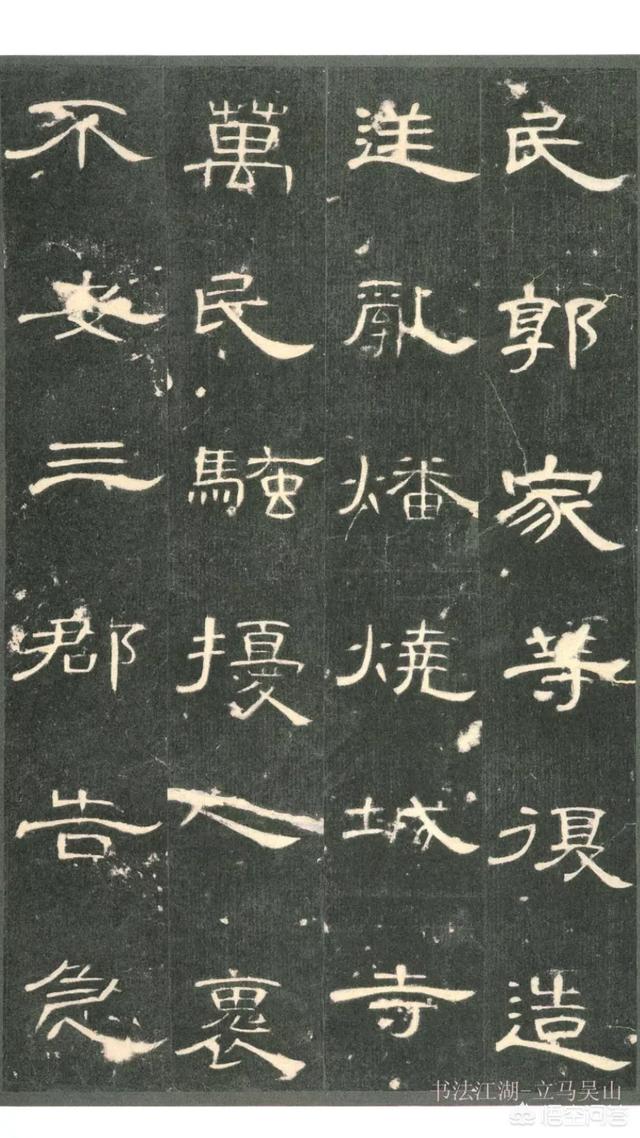 民郭家等復造
逆亂燔燒城寺
萬民騷擾人裹
不安三郡告急
书法江湖-立马吴山
悟空问答